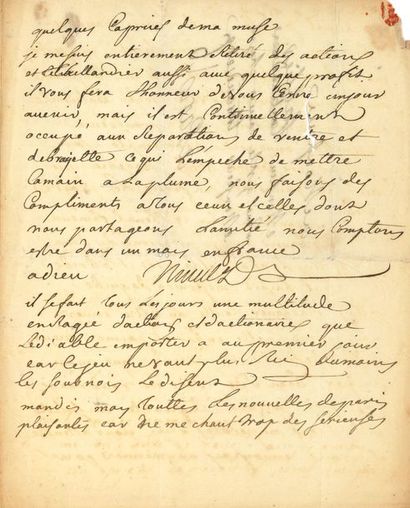 quelques Caprices dema muse
je mesuis entierement Retiré des actions
et aussi avec quelque profit
il vous fera lhonneur devous Ecrire unjour
avenir, mais il est Continuellement
occupé aux Reparations de ventre et
debrajette Cequi Lempeche de mettre
Lamain alaplume nous faisons des
Compliments atous ceux etcelles dont
nous partageons Lamitié nous Comptons
estre dans un mois enfrance
adieu
il sefait tous lesjours une multitude
enragée dactions etdactionaires que
Lediable emportera aupremier jour
car Lejeu nevaut plus Rien Dumoins
les sournois Ledisent
mandes moy touttes Les nouvelles deparis
plaisantes car Ine me chaut trop des serieuses